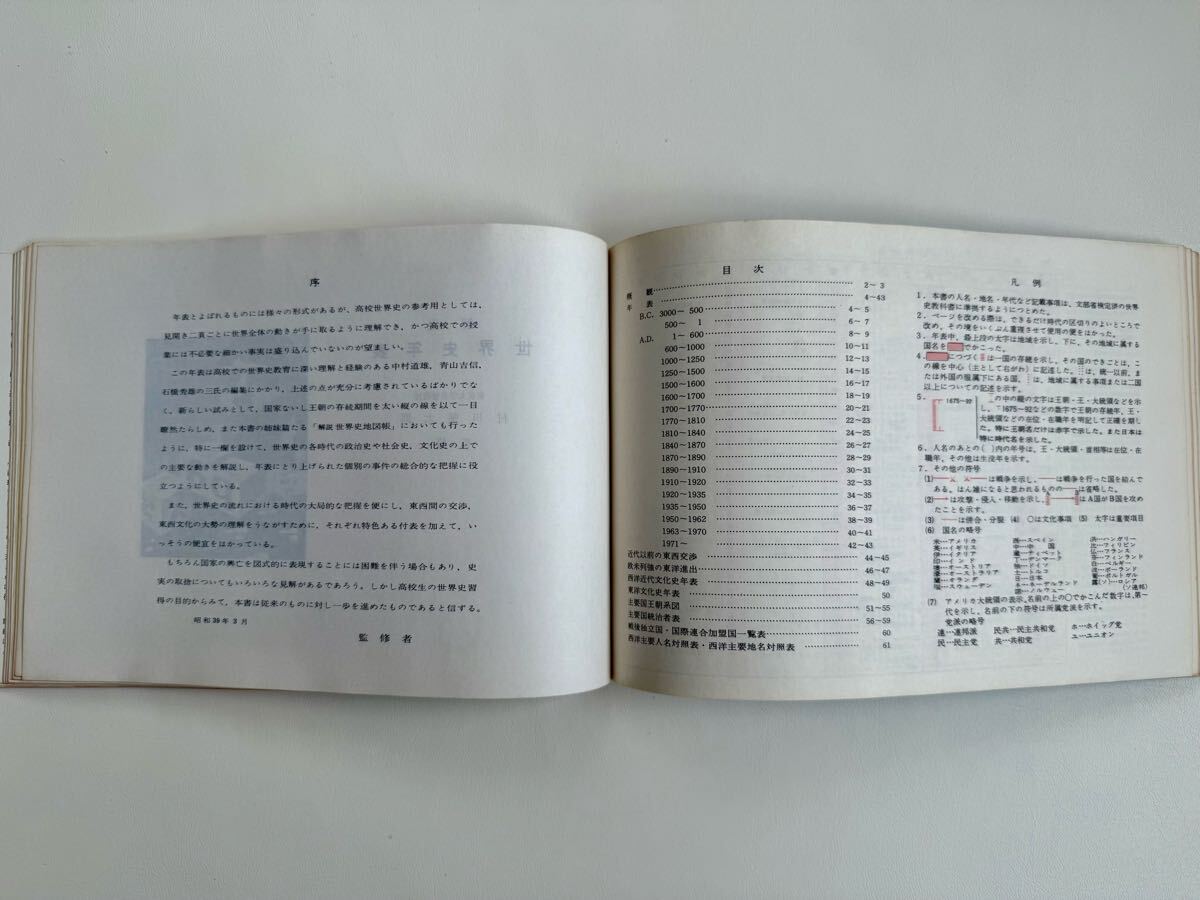 序
年表とよばれるものには様々の形式があるが、高校世界史の参考用としては、
見開き二頁ごとに世界全体の動きが手に取るように理解でき、かつ高校での授
業には不必要な細かい事実は盛り込んでいないのが望ましい。
この年表は高校での世界史教育に深い理解と経験のある中村道雄、青山吉信、
石橋秀雄の三氏の編集にかかり、上述の点が充分に考慮されているばかりでな
く、新らしい試みとして、国家ないし王朝の存続期間を太い縦の線を以て一目
瞭然たらしめ、また本書の姉妹篇たる「解説世界史地図帳」においても行った
ように、特に一欄を設けて、世界史の各時代の政治史や社会史、文化史の上で
の主要な動きを解説し、年表にとり上げられた個別の事件の綜合的な把握に役
立つようにしている。
また、世界史の流れにおける時代の大局的な把握を便にし、東西間の交渉、
東西文化の大勢の理解をうながすために、それぞれ特色ある付表を加えて、い
っそうの便宜をはかっている。
もちろん国家の興亡を図式的に表現することには困難を伴う場合もあり、史
実の取捨についてもいろいろな見解があるであろう。しかし高校生の世界史習
得の目的からみて、本書は従来のものに対し一歩を進めたものであると信ずる。
昭和39年3月
監修者
目次
概観 2〜3
年表 4〜43
B.C. 3000〜500 4〜5
500〜1 6〜7
A.D. 1〜600 8〜9
600〜1000 10〜11
1000〜1250 12〜13
1250〜1500 14〜15
1500〜1600 16〜17
1600〜1700 18〜19
1700〜1770 20〜21
1770〜1810 22〜23
1810〜1840 24〜25
1840〜1870 26〜27
1870〜1890 28〜29
1890〜1910 30〜31
1910〜1920 32〜33
1920〜1935 34〜35
1935〜1950 36〜37
1950〜1962 38〜39
1963〜1970 40〜41
1971〜 42〜43
近代以前の東西交渉 44〜45
欧米列強の東洋進出 46〜47
西洋近代文化史年表 48〜49
東洋文化史年表 50
主要国王朝系図 51〜55
主要国統治者表 56〜59
戦後独立国・国際連合加盟国一覧表 60
西洋主要人名対照表・西洋主要地名対照表 61
凡例
1．本書の人名・地名・年代など記載事項は、文部省検定済の世界
史教科書に準拠するようにつとめた。
2．ページを改める際は、できるだけ時代の区切りのよいところで
改め、その境をいくぶん重複させて使用の便をはかった。
3．年表中、最上段の太字は地域を示し、下に、その地域に属する
国名を でかこった。
4． につづく は一国の存続を示し、その国のできごとは、こ
の線を中心（主として右がわ）に記述した。 は、統一以前、ま
たは外国の服属下にある国、 は、地域に属する事項または二国
以上についての記述を示す。
5． 1675〜92 の中の縦の文字は王朝・王・大統領などを示
し、「1675〜92などの数字で王朝の存続年、王・
大統領などの在位・在職年を明記して正確を期し
た。特に王朝名だけは赤字で示した。また日本は
特に時代名を示した。
6．人名のあとの（ ）内の年号は、王・大統領・首相等は在位・在
職年、その他は生没年を示す。
7．その他の符号
(1) は戦争を示し、 は戦争を行った国を結んで
ある。はん雑になると思われるものの は省略した。
(2) は攻撃・侵入・移動を示し、 はA国がB国を攻め
たことを示す。
(3) は併合・分裂 (4) ○は文化事項 (5) 太字は重要項目
(6) 国名の略号
米…アメリカ 西…スペイン 洪…ハンガリー
英…イギリス 中…中国 比…フィリピン
伊…イタリア 仏…フランス
印…インド 丁…デンマーク 芬…フィンランド
墺…オーストリア 独…ドイツ 白…ベルギー
豪…オーストラリア 土…トルコ 波…ポーランド
蘭…オランダ 日…日本 葡…ポルトガル
瑞…スウェーデン 露(ソ)…ロシア
諾…ノルウェー (ソ連邦)
(7) アメリカ大統領の表示、名前の上の○でかこんだ数字は、第一
代を示し、名前の下の符号は所属党派を示す。
党派の略号
連…連邦派 民共…民主共和党 ホ…ホイッグ党
民…民主党 共…共和党 ユ…ユニオン